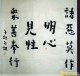 諸惡莫作
明心見性
眾善奉行